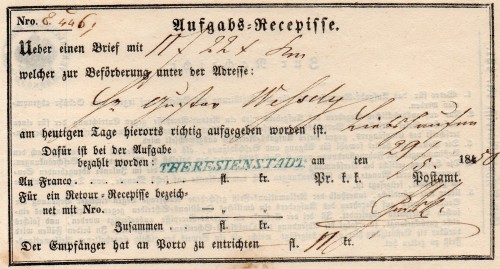 Nro.
Aufgabs-Recepisse.
Ueber einen Brief mit
welcher zur Beförderung unter der Adresse:
Gustav Wessely
am heutigen Tage hierorts richtig aufgegeben worden ist.
Dafür ist bei der Aufgabe
bezahlt worden: THERESIENSTADT am ten 29/5 1850
An Franco fl. kr. Pr. k. k. Postamt.
Für ein Retour-Recepisse bezeich-
net mit Nro.
Zusammen fl. kr.
Der Empfänger hat an Porto zu entrichten fl. kr.